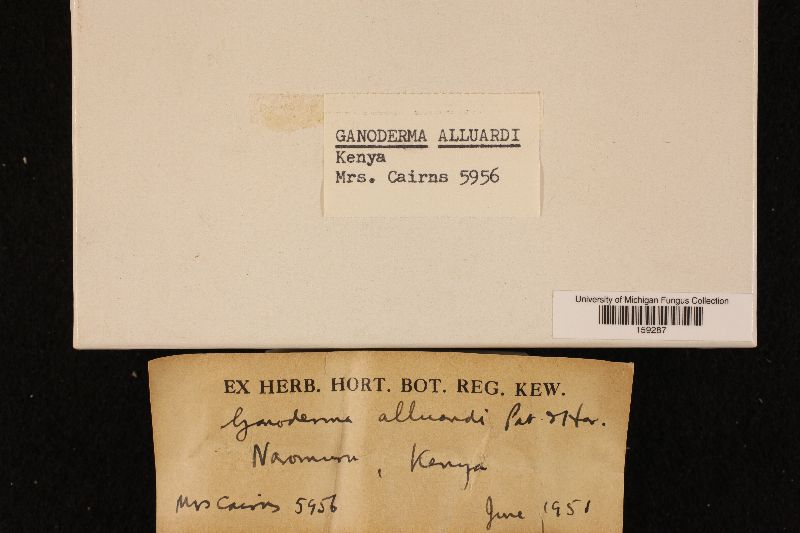 GANODERMA ALLUARDI
Kenya
Mrs. Cairns 5956
University of Michigan Fungus Collection
159287
EX HERB. HORT. BOT. REG. KEW.
Ganoderma alluardi Pat. & Har.
Naromuru, Kenya
Mrs Cairns 5956 June 1951